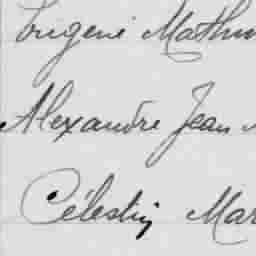 Eugène Mathu
Alexandre Jean
Célestin Mar